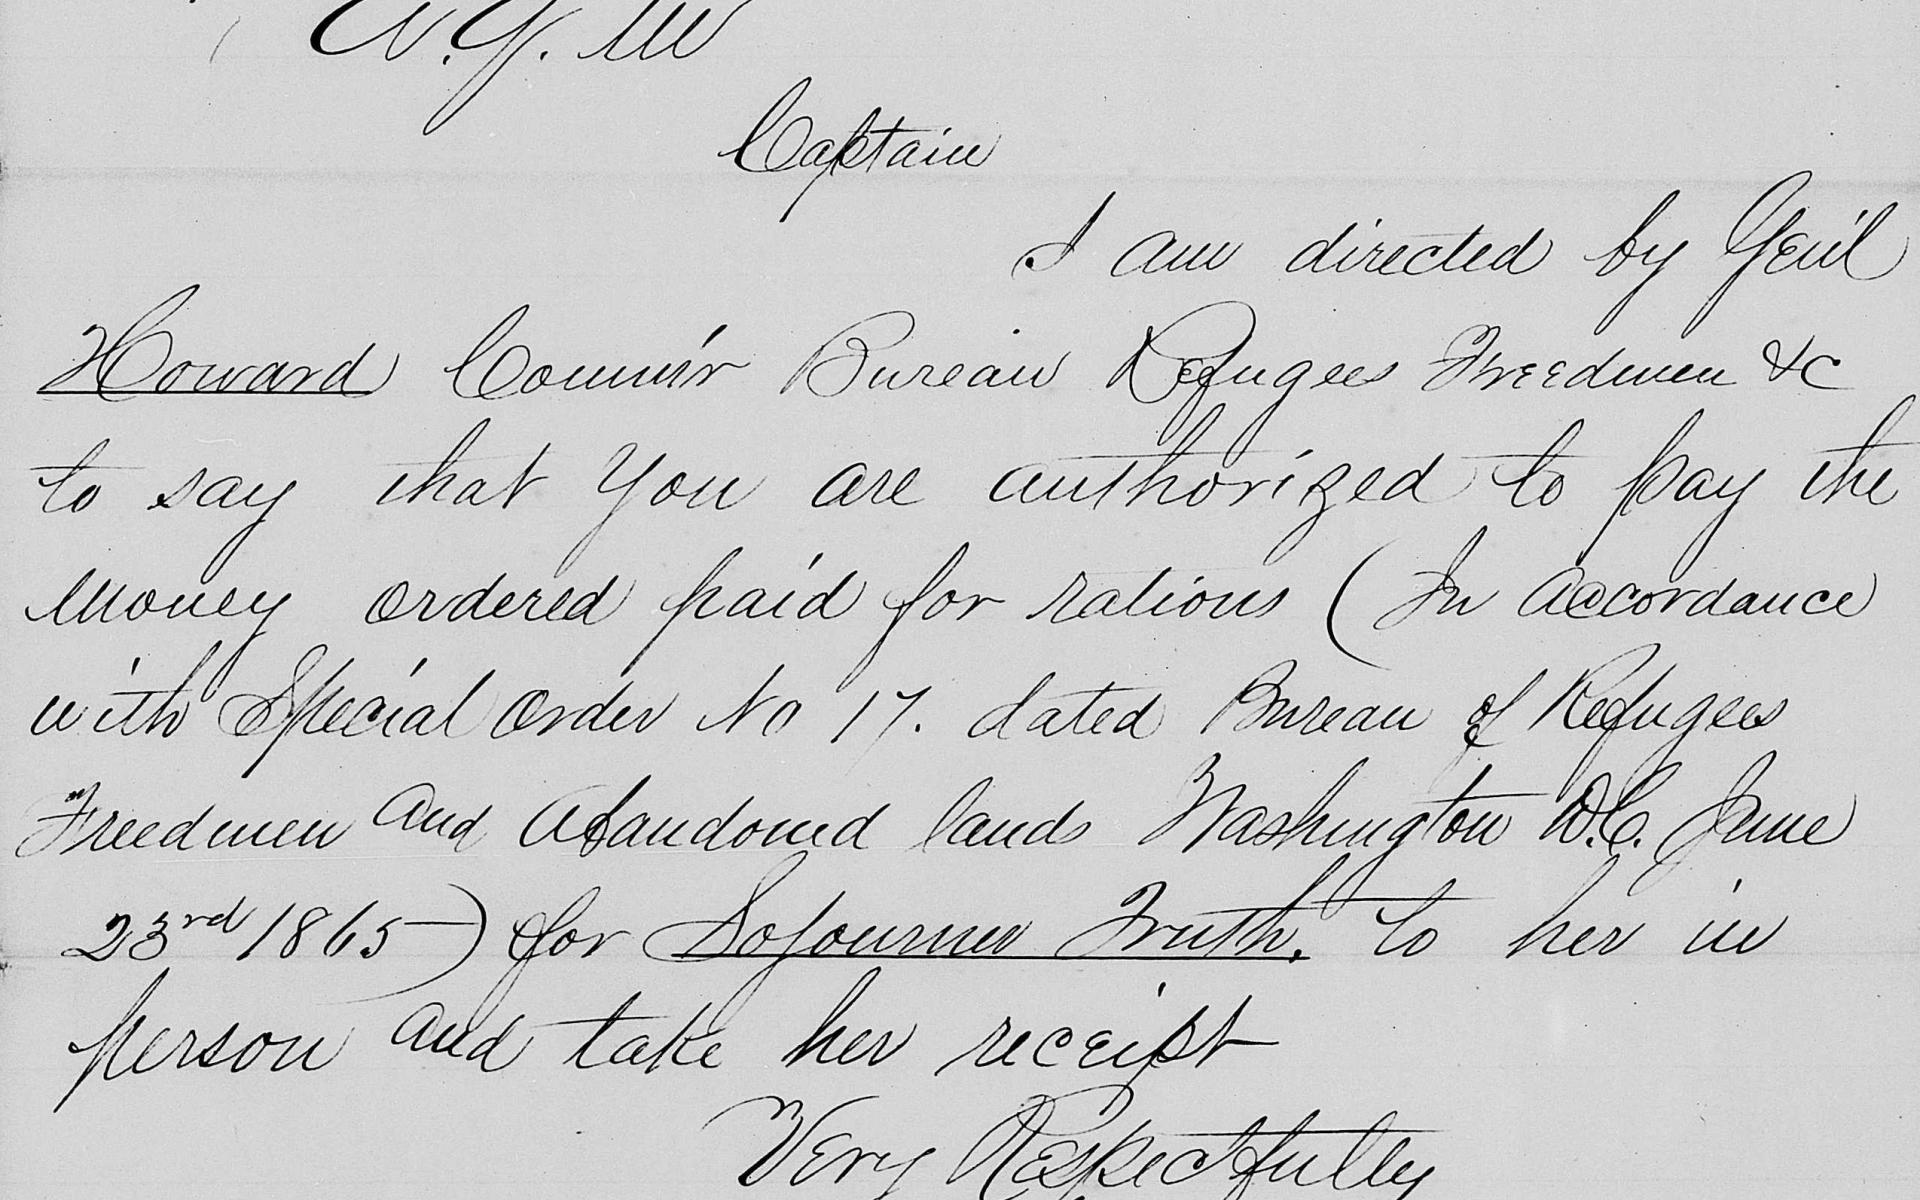 A. Q. M
Captain
I am directed by Gen'l
Howard Comm'r Bureau Refugees Freedmen &c
to say that you are authorized to pay the
money ordered paid for rations (In accordance
with Special Order No 17. dated Bureau of Refugees
Freedmen and Abandoned lands Washington D.C. June
23rd 1865) for Sojourner Truth. to her in
person and take her receipt
Very Respectfully